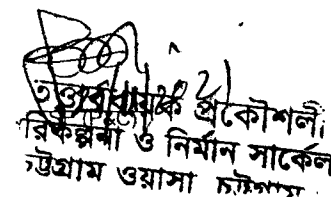 তত্ত্বাবধায়ক প্রকৌশলী
রিকল্পনা ও নির্মান সার্কেল
চট্টগ্রাম ওয়াসা চট্টগ্রাম